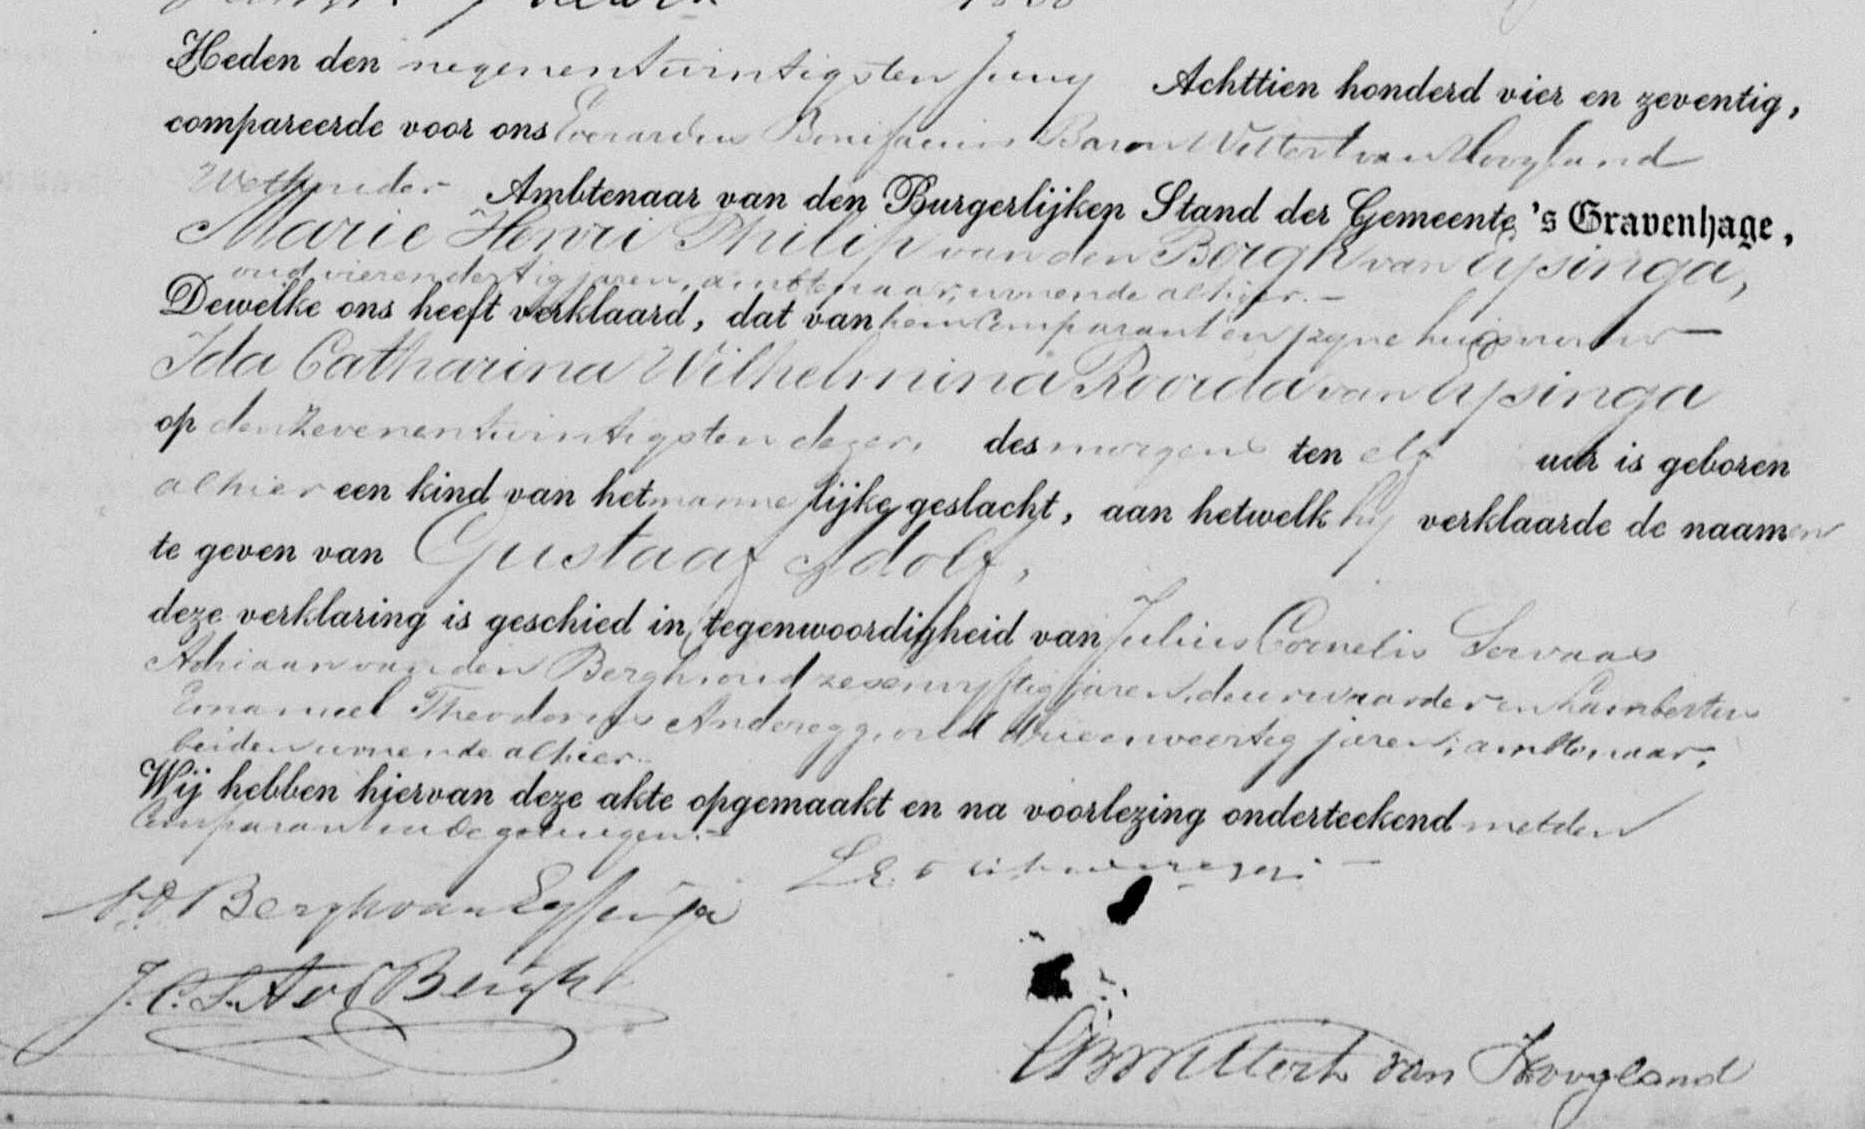 Heden den negenentwintigsten Juny Achttien honderd vier en zeventig,
compareerde voor ons Everardus Bonifacius Baron Wittert van Hoogland
Wethouder Ambtenaar van den Burgerlijken Stand der Gemeente 's Gravenhage,
Marie Henri Philip van den Bergh van Eysinga,
oud vierendertig jaren, ambtenaar, wonende alhier. –
Dewelke ons heeft verklaard, dat van hem Comparant en zyne huisvrouw –
Ida Catharina Wilhelmina Roorda van Eysinga
op den zevenentwintigsten dezer, des morgens ten elf uur is geboren
alhier een kind van het mannelijke geslacht, aan hetwelk hy verklaarde de naamen
te geven van Gustaaf Adolf,
deze verklaring is geschied in tegenwoordigheid van Julius Cornelis Servaas
Adriaan van den Bergh, oud zesenvyftig jaren, deurwaarder en Lambertus
Emanuel Theodorus Anderegg, oud drieenveertig jaren, ambtenaar,
beiden wonende alhier.
Wij hebben hiervan deze akte opgemaakt en na voorlezing onderteekend met den
Comparant en de getuigen. –
vd Bergh van Eysinga
J. C. S. A vd Bergh
EB Wittert van Hoogland